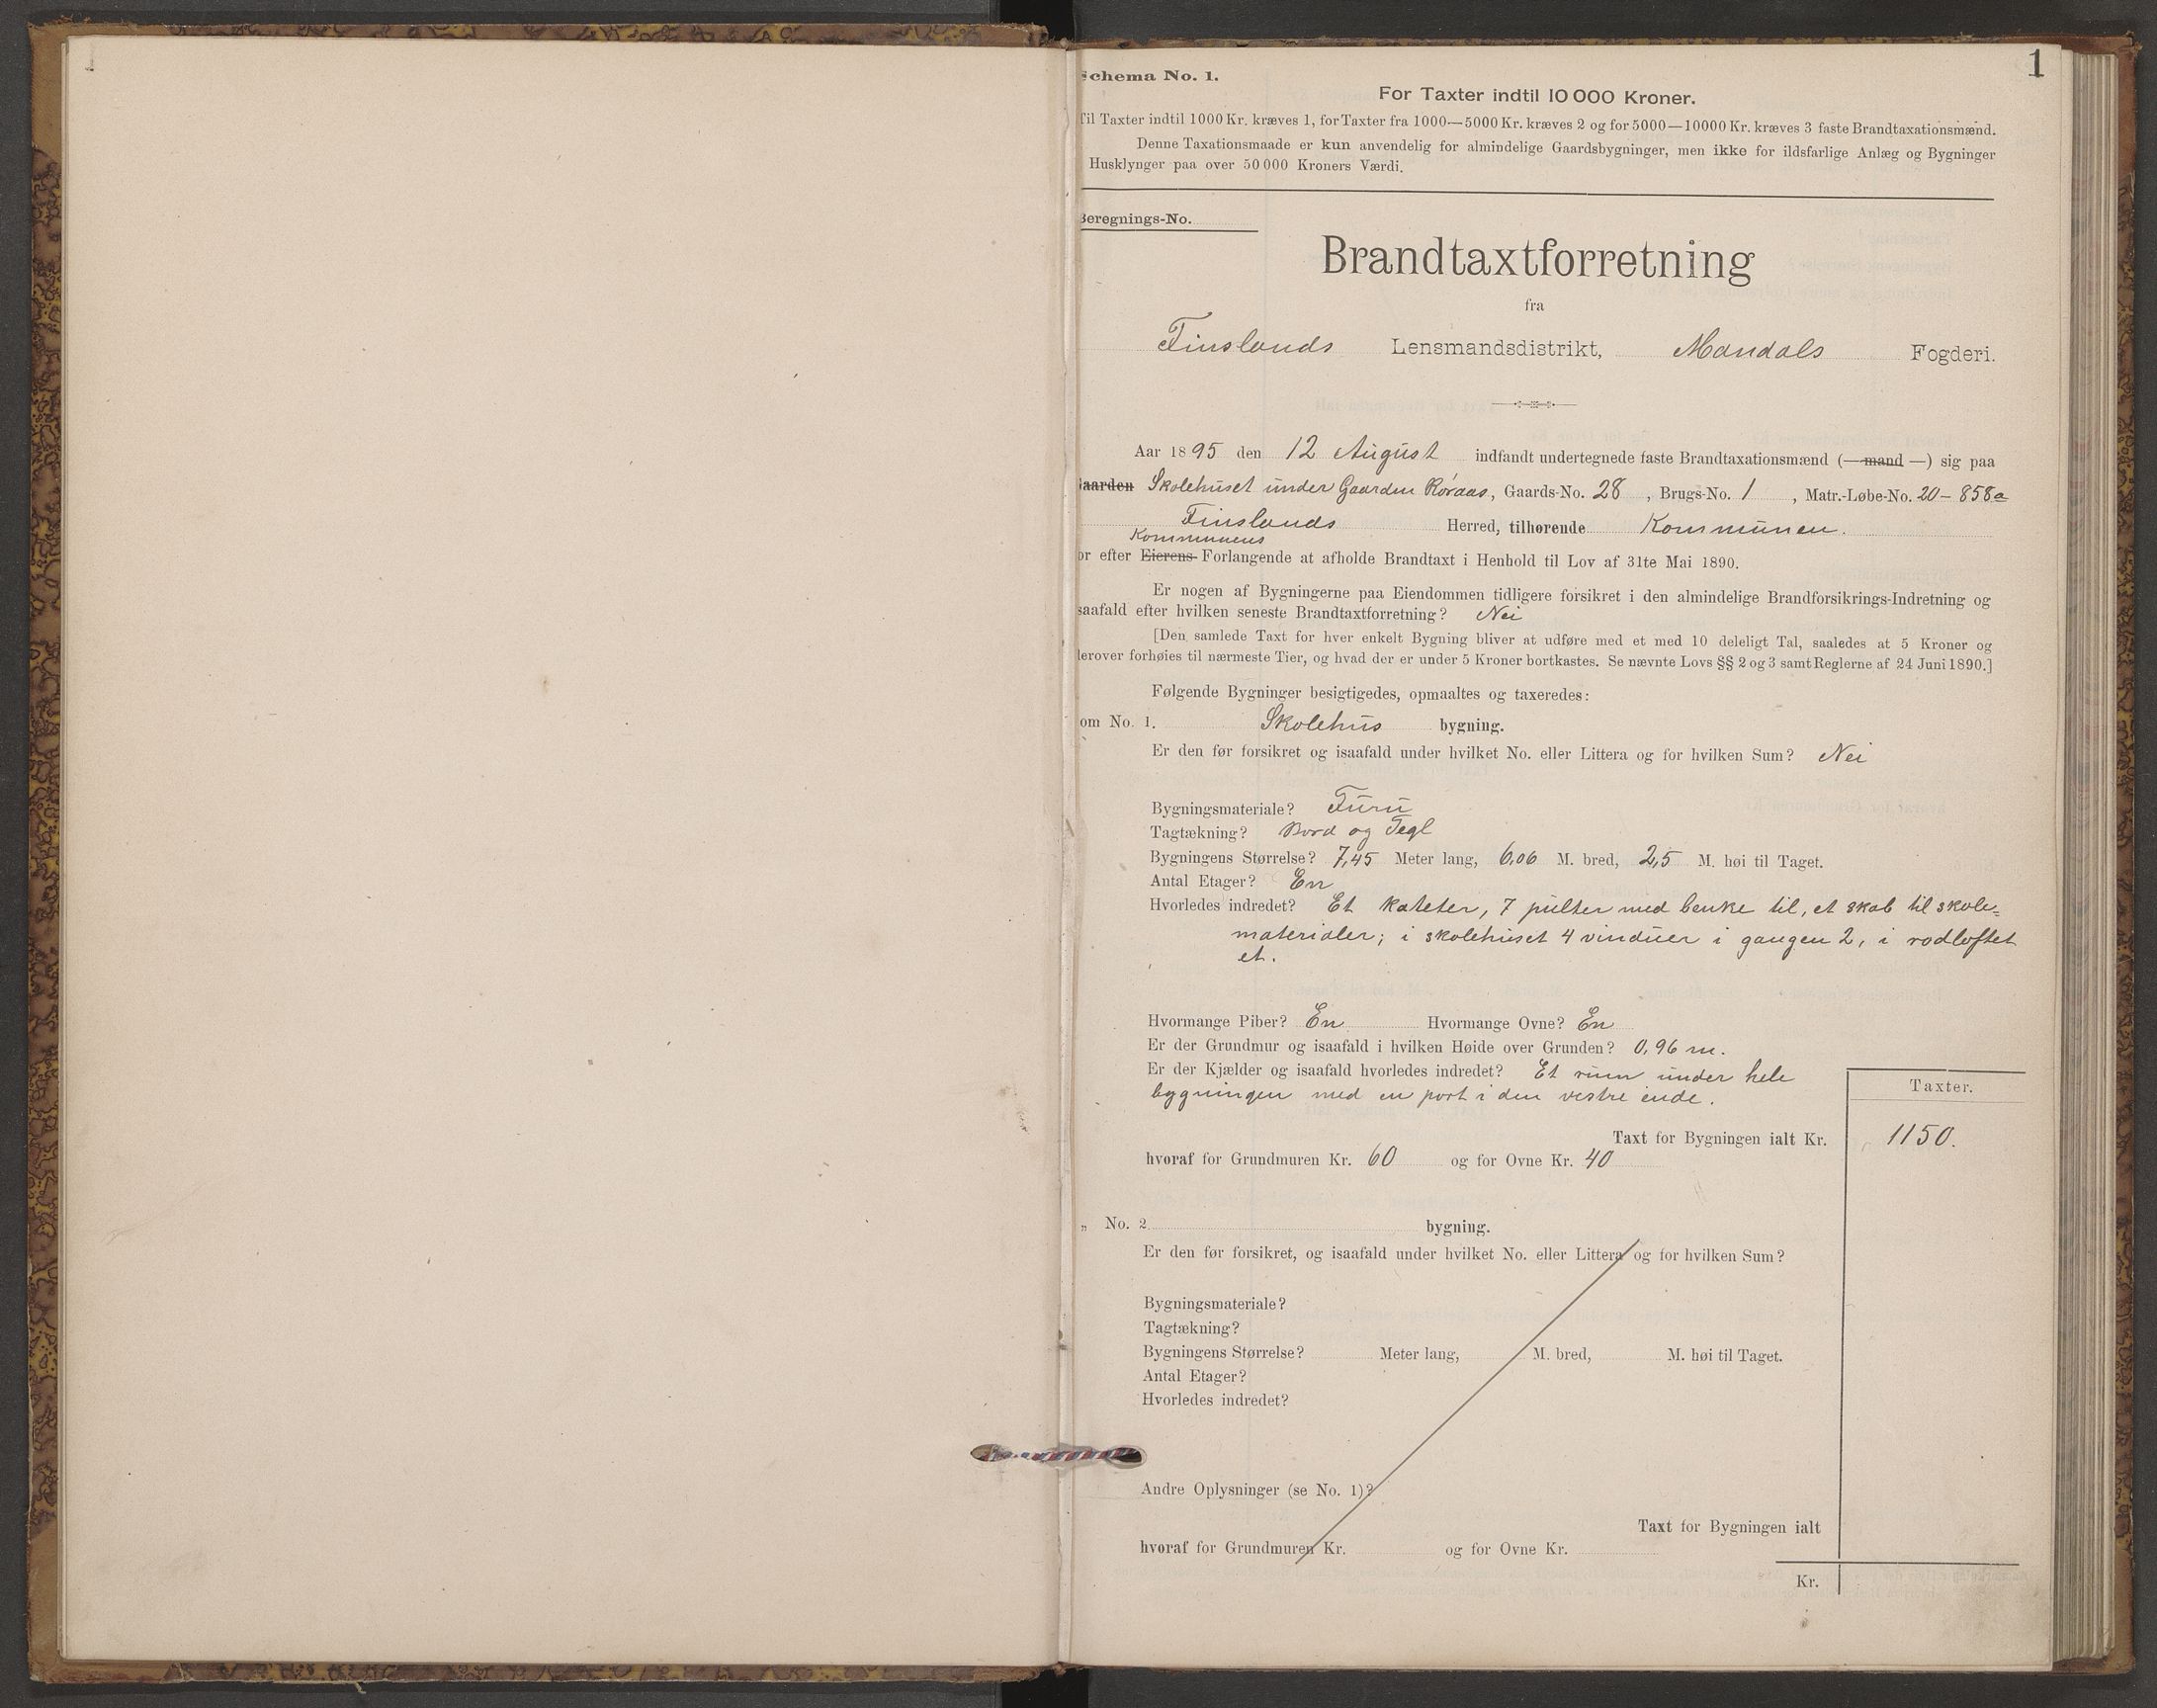 1
Schema No. 1.
For Taxter indtil 10 000 Kroner.
Til Taxter indtil 1000 Kr. kræves 1, for Taxter fra 1000—5000 Kr. kræves 2 og for 5000—10000 Kr. kræves 3 faste Brandtaxationsmænd.
Denne Taxationsmaade er kun anvendelig for almindelige Gaardsbygninger, men ikke for ildsfarlige Anlæg og Bygninger
Husklynger paa over 50 000 Kroners Værdi.
Beregnings-No.
Brandtaxtforretning
fra
Finslands Lensmandsdistrikt, Mandals Fogderi.
Aar 1895 den 12 August indfandt undertegnede faste Brandtaxationsmænd (— mand —) sig paa
Gaarden Skolehuset under Gaarden Røraas, Gaards-No. 28, Brugs-No. 1, Matr.-Løbe-No. 20-858a
Finslands Herred, tilhørende Kommunen.
Kommunens
or efter Eierens Forlangende at afholde Brandtaxt i Henhold til Lov af 31te Mai 1890.
Er nogen af Bygningerne paa Eiendommen tidligere forsikret i den almindelige Brandforsikrings-Indretning og
isaafald efter hvilken seneste Brandtaxtforretning? Nei
[Den samlede Taxt for hver enkelt Bygning bliver at udføre med et med 10 deleligt Tal, saaledes at 5 Kroner og
derover forhøies til nærmeste Tier, og hvad der er under 5 Kroner bortkastes. Se nævnte Lovs §§ 2 og 3 samt Reglerne af 24 Juni 1890.]
Følgende Bygninger besigtigedes, opmaaltes og taxeredes:
om No. 1. Skolehus bygning.
Er den før forsikret og isaafald under hvilket No. eller Littera og for hvilken Sum? Nei
Bygningsmateriale? Furu
Tagtækning? Bord og Tegl
Bygningens Størrelse? 7,45 Meter lang, 6,06 M. bred, 2,5 M. høi til Taget.
Antal Etager? En
Hvorledes indredet? Et kateter, 7 pulter med benke til, et skab til skole=
materialer; i skolehuset 4 vinduer i gangen 2, i rodloftet
et.
Hvormange Piber? En Hvormange Ovne? En
Er der Grundmur og isaafald i hvilken Høide over Grunden? 0,96 m.
Er der Kjælder og isaafald hvorledes indredet? Et rum under hele
bygningen med en port i den vestre ende.
Taxter.
Taxt for Bygningen ialt Kr. 1150.
hvoraf for Grundmuren Kr. 60 og for Ovne Kr. 40
„ No. 2 bygning.
Er den før forsikret, og isaafald under hvilket No. eller Littera og for hvilken Sum?
Bygningsmateriale?
Tagtækning?
Bygningens Størrelse? Meter lang, M. bred, M. høi til Taget.
Antal Etager?
Hvorledes indredet?
Andre Oplysninger (se No. 1)?
Taxt for Bygningen ialt
hvoraf for Grundmuren Kr. og for Ovne Kr.
Kr.